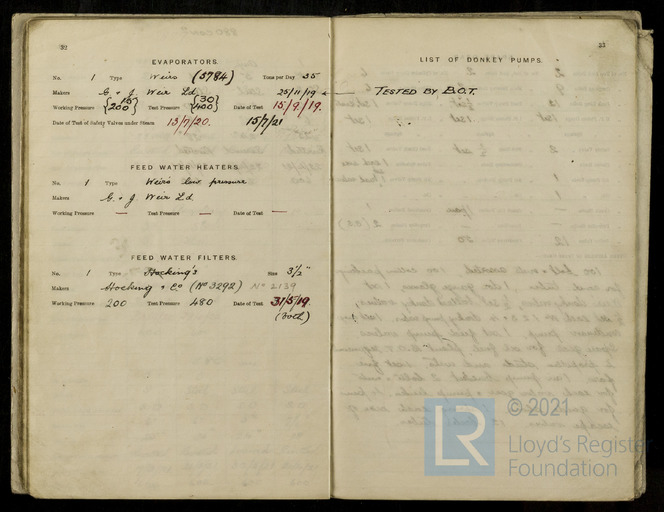 32
EVAPORATORS.
No. 1 Type Weirs (5784) Tons per Day 35
Makers G. & J. Weir Ld. 25/11/19
Working Pressure {15 200} Test Pressure {30 400} Date of Test 15/9/19.
Date of Test of Safety Valves under Steam 13/7/20. 15/7/21
FEED WATER HEATERS.
No. 1 Type Weirs low pressure
Makers G. & J Weir Ld.
Working Pressure — Test Pressure — Date of Test —
FEED WATER FILTERS.
No. 1 Type Hocking's Size 3½"
Makers Hocking & Co (No 3292) No 2139
Working Pressure 200 Test Pressure 480 Date of Test 31/5/19.
(Both)
33
LIST OF DONKEY PUMPS.
TESTED BY B.O.T.
LR
© 2021
Lloyd's Register
Foundation